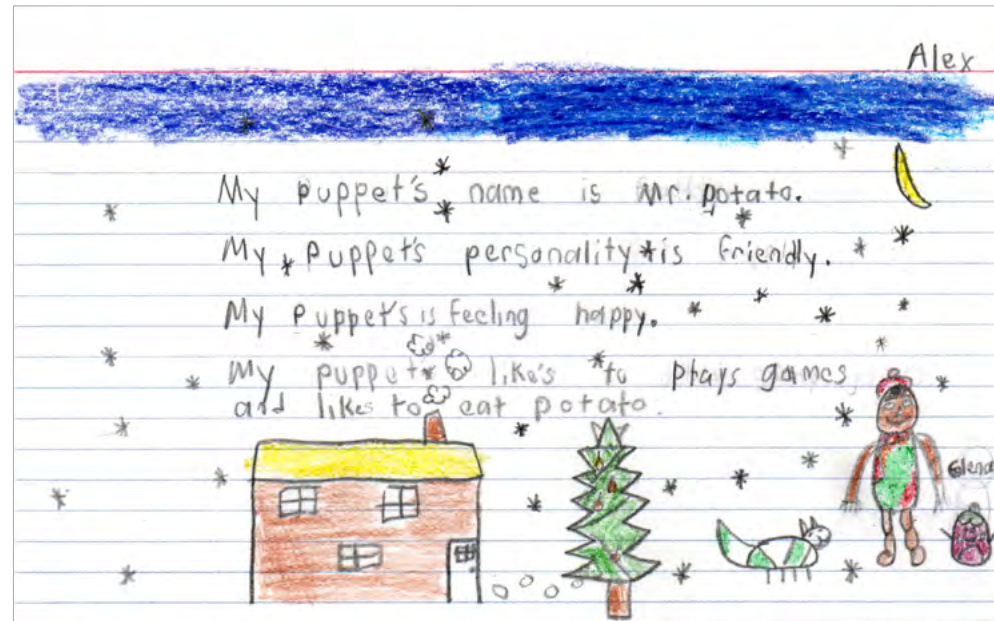 Alex
My puppet's name is Mr. potato.
My puppet's personality is friendly.
My puppet's is feeling happy.
My puppet's like's to plays games
and likes to eat potato.